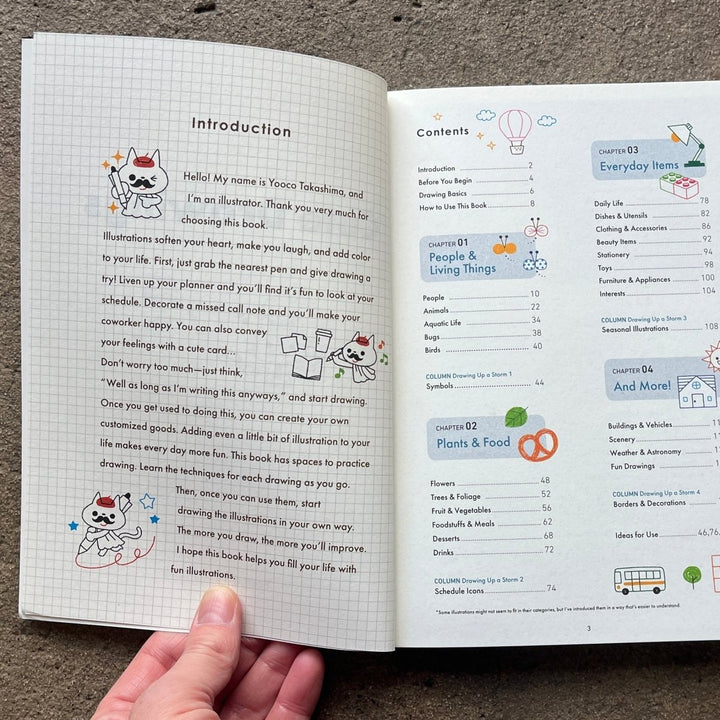 Introduction
Hello! My name is Yooco Takashima, and
I'm an illustrator. Thank you very much for
choosing this book.
Illustrations soften your heart, make you laugh, and add color
to your life. First, just grab the nearest pen and give drawing a
try! Liven up your planner and you'll find it's fun to look at your
schedule. Decorate a missed call note and you'll make your
coworker happy. You can also convey
your feelings with a cute card...
Don't worry too much—just think,
"Well as long as I'm writing this anyways," and start drawing.
Once you get used to doing this, you can create your own
customized goods. Adding even a little bit of illustration to your
life makes every day more fun. This book has spaces to practice
drawing. Learn the techniques for each drawing as you go.
Then, once you can use them, start
drawing the illustrations in your own way.
The more you draw, the more you'll improve.
I hope this book helps you fill your life with
fun illustrations.
Contents
Introduction 2
Before You Begin 4
Drawing Basics 6
How to Use This Book 8
CHAPTER 01
People &
Living Things
People 10
Animals 22
Aquatic Life 34
Bugs 38
Birds 40
COLUMN Drawing Up a Storm 1
Symbols 44
CHAPTER 02
Plants & Food
Flowers 48
Trees & Foliage 52
Fruit & Vegetables 56
Foodstuffs & Meals 62
Desserts 68
Drinks 72
COLUMN Drawing Up a Storm 2
Schedule Icons 74
CHAPTER 03
Everyday Items
Daily Life 78
Dishes & Utensils 82
Clothing & Accessories 86
Beauty Items 92
Stationery 94
Toys 98
Furniture & Appliances 100
Interests 104
COLUMN Drawing Up a Storm 3
Seasonal Illustrations 108
CHAPTER 04
And More!
Buildings & Vehicles
Scenery
Weather & Astronomy
Fun Drawings
COLUMN Drawing Up a Storm 4
Borders & Decorations
Ideas for Use 46,76,
*Some illustrations might not seem to fit in their categories, but I've introduced them in a way that's easier to understand.
3